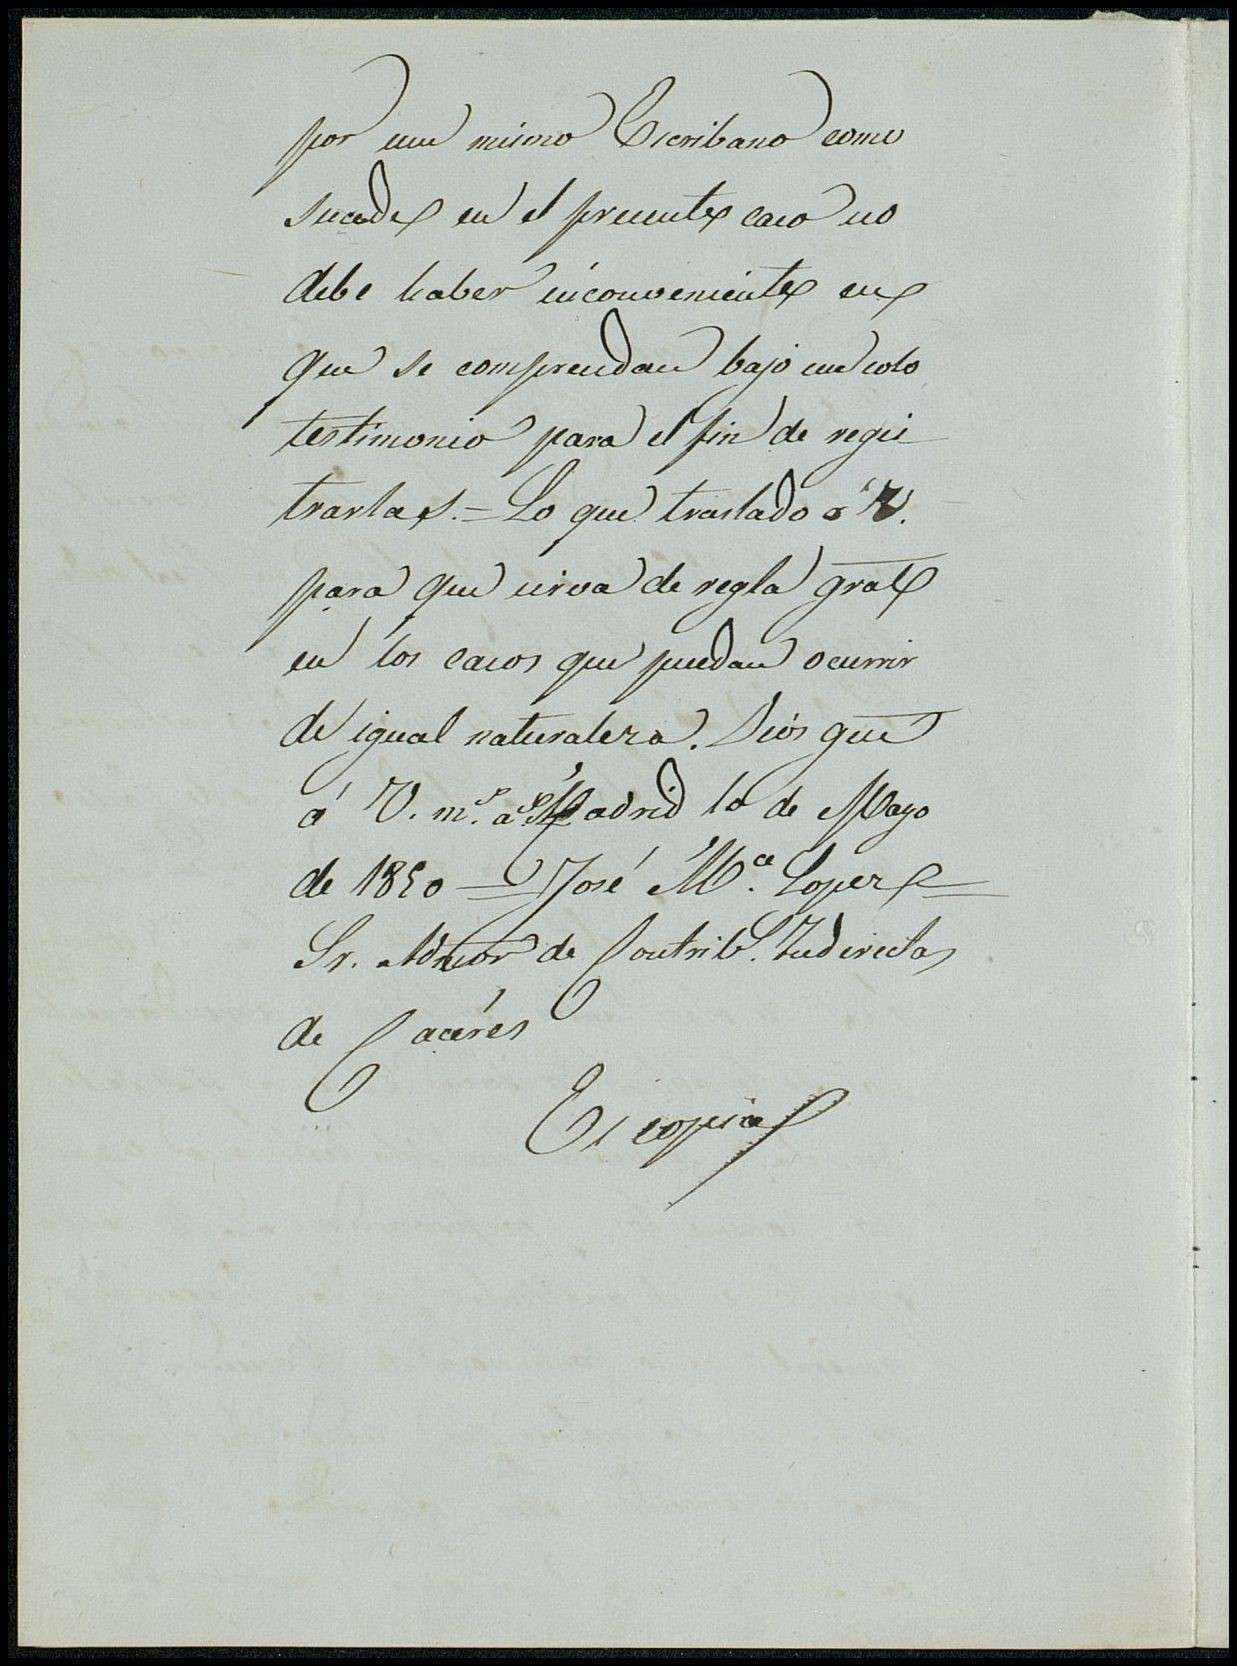 por un mismo Escribano como
sucede en el presente caso no
debe haber inconveniente en
que se comprendan bajo un solo
testimonio para el fin de regis
trarlas.=Lo que traslado á V.
para que sirva de regla gral
en los casos que puedan ocurrir
de igual naturaleza. Dios gue
á V. ms. as. Madrid 10 de Mayo
de 1850 = José Ma. Lopez =
Sr. Admor de Contribs. Indirectas
de Cacéres
Es copia